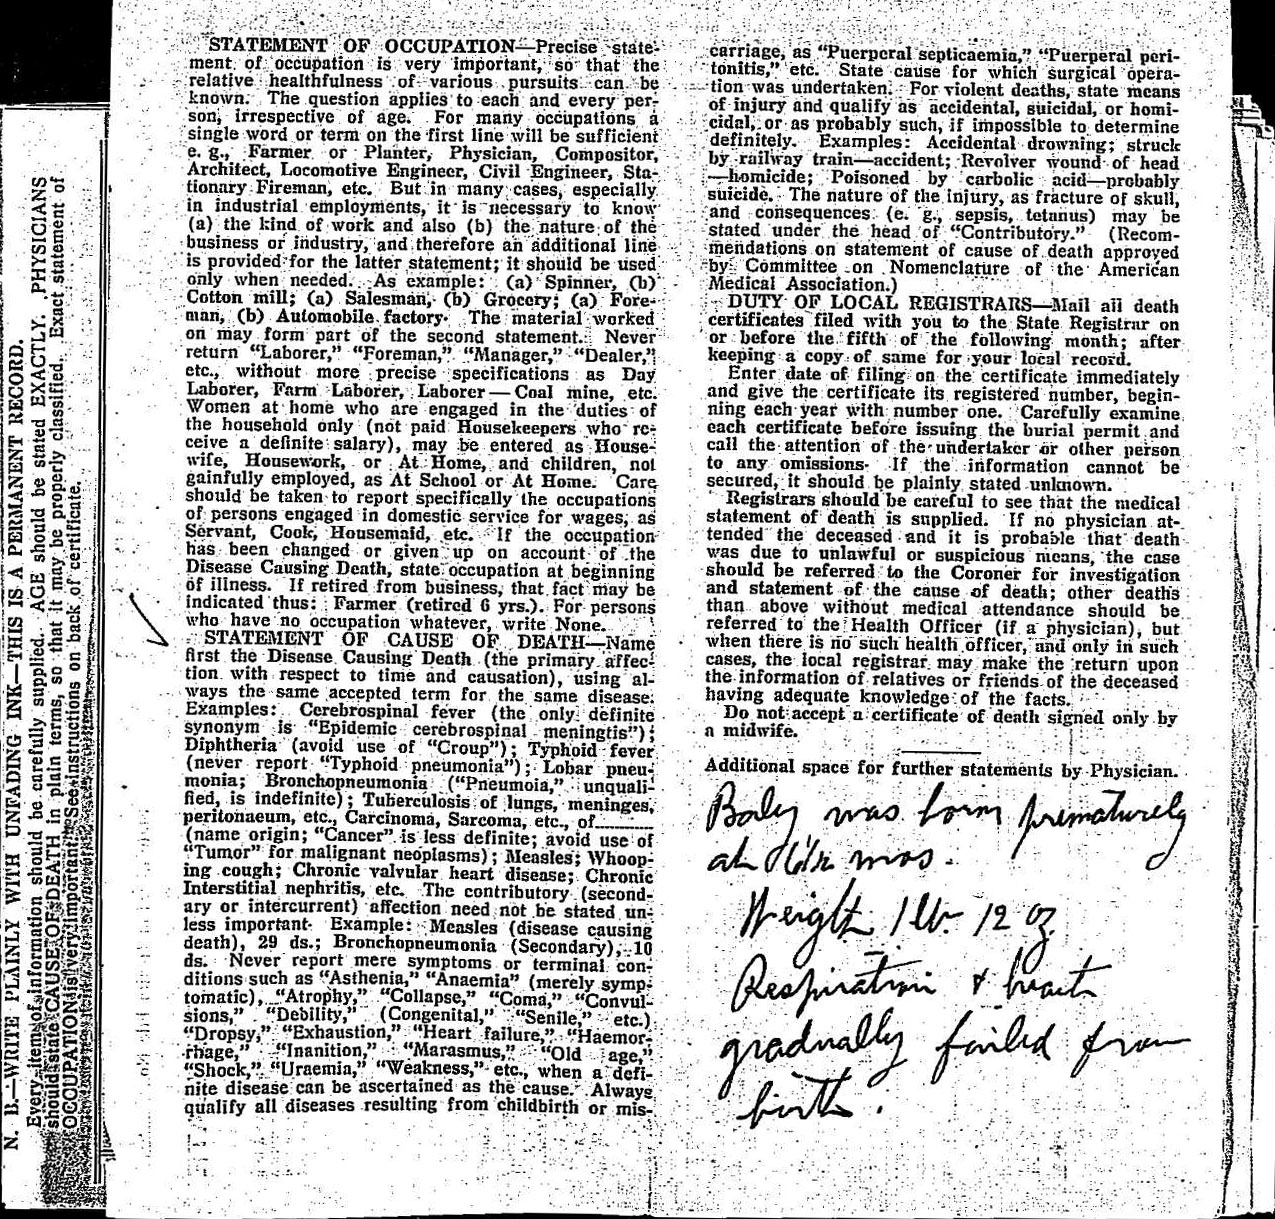 N. B.—WRITE PLAINLY WITH UNFADING INK—THIS IS A PERMANENT RECORD.
Every item of information should be carefully supplied. AGE should be stated EXACTLY. PHYSICIANS
should state CAUSE OF DEATH in plain terms, so that it may be properly classified. Exact statement of
OCCUPATION is very important. See instructions on back of certificate.
STATEMENT OF OCCUPATION—Precise state-
ment of occupation is very important, so that the
relative healthfulness of various pursuits can be
known. The question applies to each and every per-
son, irrespective of age. For many occupations a
single word or term on the first line will be sufficient
e. g., Farmer or Planter, Physician, Compositor,
Architect, Locomotive Engineer, Civil Engineer, Sta-
tionary Fireman, etc. But in many cases, especially
in industrial employments, it is necessary to know
(a) the kind of work and also (b) the nature of the
business or industry, and therefore an additional line
is provided for the latter statement; it should be used
only when needed. As example: (a) Spinner, (b)
Cotton mill; (a) Salesman, (b) Grocery; (a) Fore-
man, (b) Automobile factory. The material worked
on may form part of the second statement. Never
return "Laborer," "Foreman," "Manager," "Dealer,"
etc., without more precise specifications as Day
Laborer, Farm Laborer, Laborer—Coal mine, etc.
Women at home who are engaged in the duties of
the household only (not paid Housekeepers who re-
ceive a definite salary), may be entered as House-
wife, Housework, or At Home, and children, not
gainfully employed, as At School or At Home. Care
should be taken to report specifically the occupations
of persons engaged in domestic service for wages, as
Servant, Cook, Housemaid, etc. If the occupation
has been changed or given up on account of the
Disease Causing Death, state occupation at beginning
of illness. If retired from business, that fact may be
indicated thus: Farmer (retired 6 yrs.). For persons
who have no occupation whatever, write None.
STATEMENT OF CAUSE OF DEATH—Name
first the Disease Causing Death (the primary affec-
tion with respect to time and causation), using al-
ways the same accepted term for the same disease.
Examples: Cerebrospinal fever (the only definite
synonym is "Epidemic cerebrospinal meningtis");
Diphtheria (avoid use of "Croup"); Typhoid fever
(never report "Typhoid pneumonia"); Lobar pneu-
monia; Bronchopneumonia ("Pneumoia," unquali-
fied, is indefinite); Tuberculosis of lungs, meninges,
peritonaeum, etc., Carcinoma, Sarcoma, etc., of
(name origin; "Cancer" is less definite; avoid use of
"Tumor" for malignant neoplasms); Measles; Whoop-
ing cough; Chronic valvular heart disease; Chronic
Interstitial nephritis, etc. The contributory (second-
ary or intercurrent) affection need not be stated un-
less important. Example: Measles (disease causing
death), 29 ds.; Bronchopneumonia (Secondary), 10
ds. Never report mere symptoms or terminal con-
ditions such as "Asthenia," "Anaemia" (merely symp-
tomatic), "Atrophy," "Collapse," "Coma," "Convul-
sions," "Debility," (Congenital," "Senile," etc.)
"Dropsy," "Exhaustion," "Heart failure," "Haemor-
rhage," "Inanition," "Marasmus," "Old age,"
"Shock," "Uraemia," "Weakness," etc., when a defi-
nite disease can be ascertained as the cause. Always
qualify all diseases resulting from childbirth or mis-
carriage, as "Puerperal septicaemia," "Puerperal peri-
tonitis," etc. State cause for which surgical opera-
tion was undertaken. For violent deaths, state means
of injury and qualify as accidental, suicidal, or homi-
cidal, or as probably such, if impossible to determine
definitely. Examples: Accidental drowning; struck
by railway train—accident; Revolver wound of head
—homicide; Poisoned by carbolic acid—probably
suicide. The nature of the injury, as fracture of skull,
and consequences (e. g., sepsis, tetanus) may be
stated under the head of "Contributory." (Recom-
mendations on statement of cause of death approved
by Committee on Nomenclature of the American
Medical Association.)
DUTY OF LOCAL REGISTRARS—Mail all death
certificates filed with you to the State Registrar on
or before the fifth of the following month; after
keeping a copy of same for your local record.
Enter date of filing on the certificate immediately
and give the certificate its registered number, begin-
ning each year with number one. Carefully examine
each certificate before issuing the burial permit and
call the attention of the undertaker or other person
to any omissions. If the information cannot be
secured, it should be plainly stated unknown.
Registrars should be careful to see that the medical
statement of death is supplied. If no physician at-
tended the deceased and it is probable that death
was due to unlawful or suspicious means, the case
should be referred to the Coroner for investigation
and statement of the cause of death; other deaths
than above without medical attendance should be
referred to the Health Officer (if a physician), but
when there is no such health officer, and only in such
cases, the local registrar may make the return upon
the information of relatives or friends of the deceased
having adequate knowledge of the facts.
Do not accept a certificate of death signed only by
a midwife.
Additional space for further statements by Physician.
Baby was born prematurely
at 6½ mos.
Weight 1 lb. 12 oz
Respiration & heart
gradually failed from
birth.